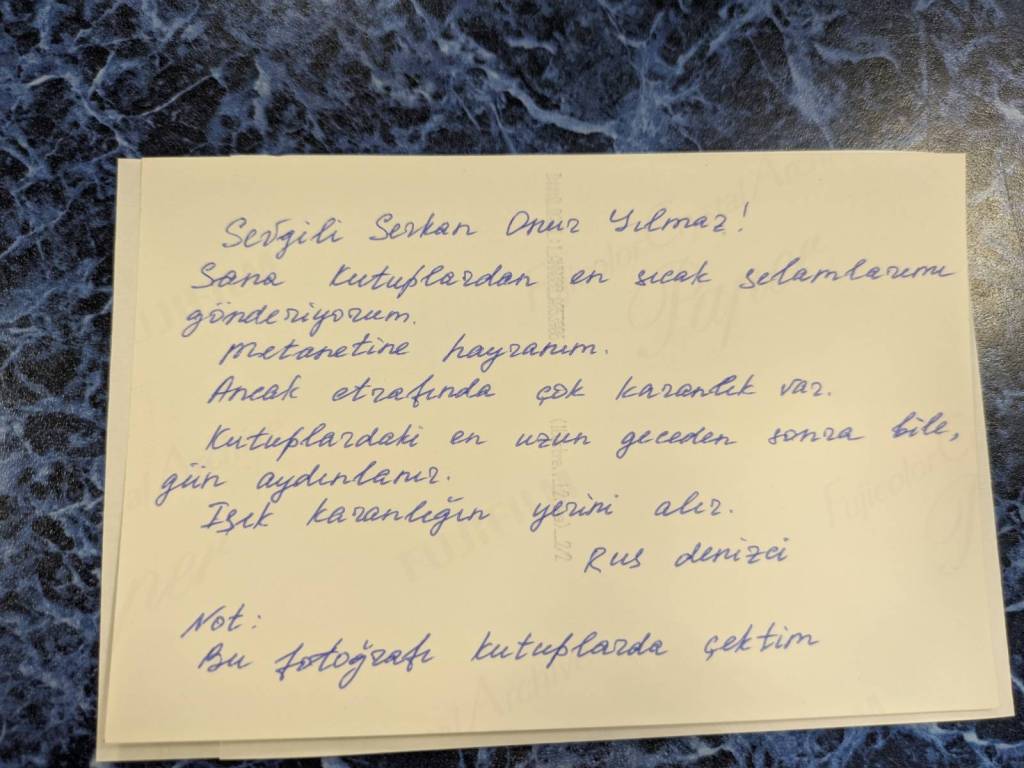 Sevgili Serkan Onur Yılmaz!
Sana kutuplardan en sıcak selamlarımı
gönderiyorum.
Metanetine hayranım.
Ancak etrafında çok karanlık var.
Kutuplardaki en uzun geceden sonra bile,
gün aydınlanır.
Işık karanlığın yerini alır.
Rus denizci
Not:
Bu fotoğrafı kutuplarda çektim